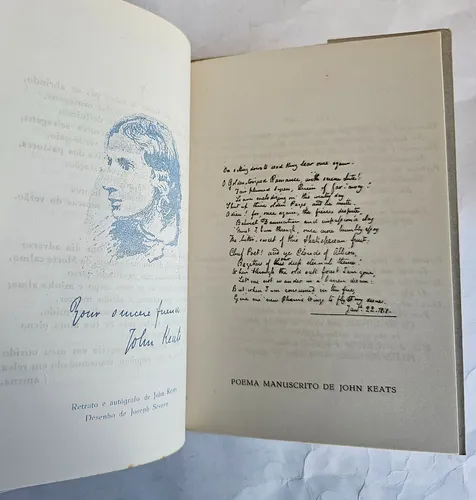 Your sincere friend
John Keats
Retrato e autógrafo de John Keats
Desenho de Joseph Severn
On sitting down to read King Lear once again.
O Golden-tongued Romance, with serene Lute!
Fair plumed Syren, Queen of far-away!
Leave melodizing on this wintry day
Shut up thine olden Pages, and be mute.
Adieu! for, once again, the fierce dispute,
Betwixt Damnation and impassion'd clay
Must I burn through; once more humbly assay
The bitter-sweet of this Shakespearean fruit.
Chief Poet! and ye Clouds of Albion,
Begetters of this deep eternal theme!
When through the old oak forest I am gone,
Let me not wander in a barren dream:
But when I am consumed in the fire,
Give me new Phoenix Wings to fly at my desire.
Jany. 22. 1818-
POEMA MANUSCRITO DE JOHN KEATS